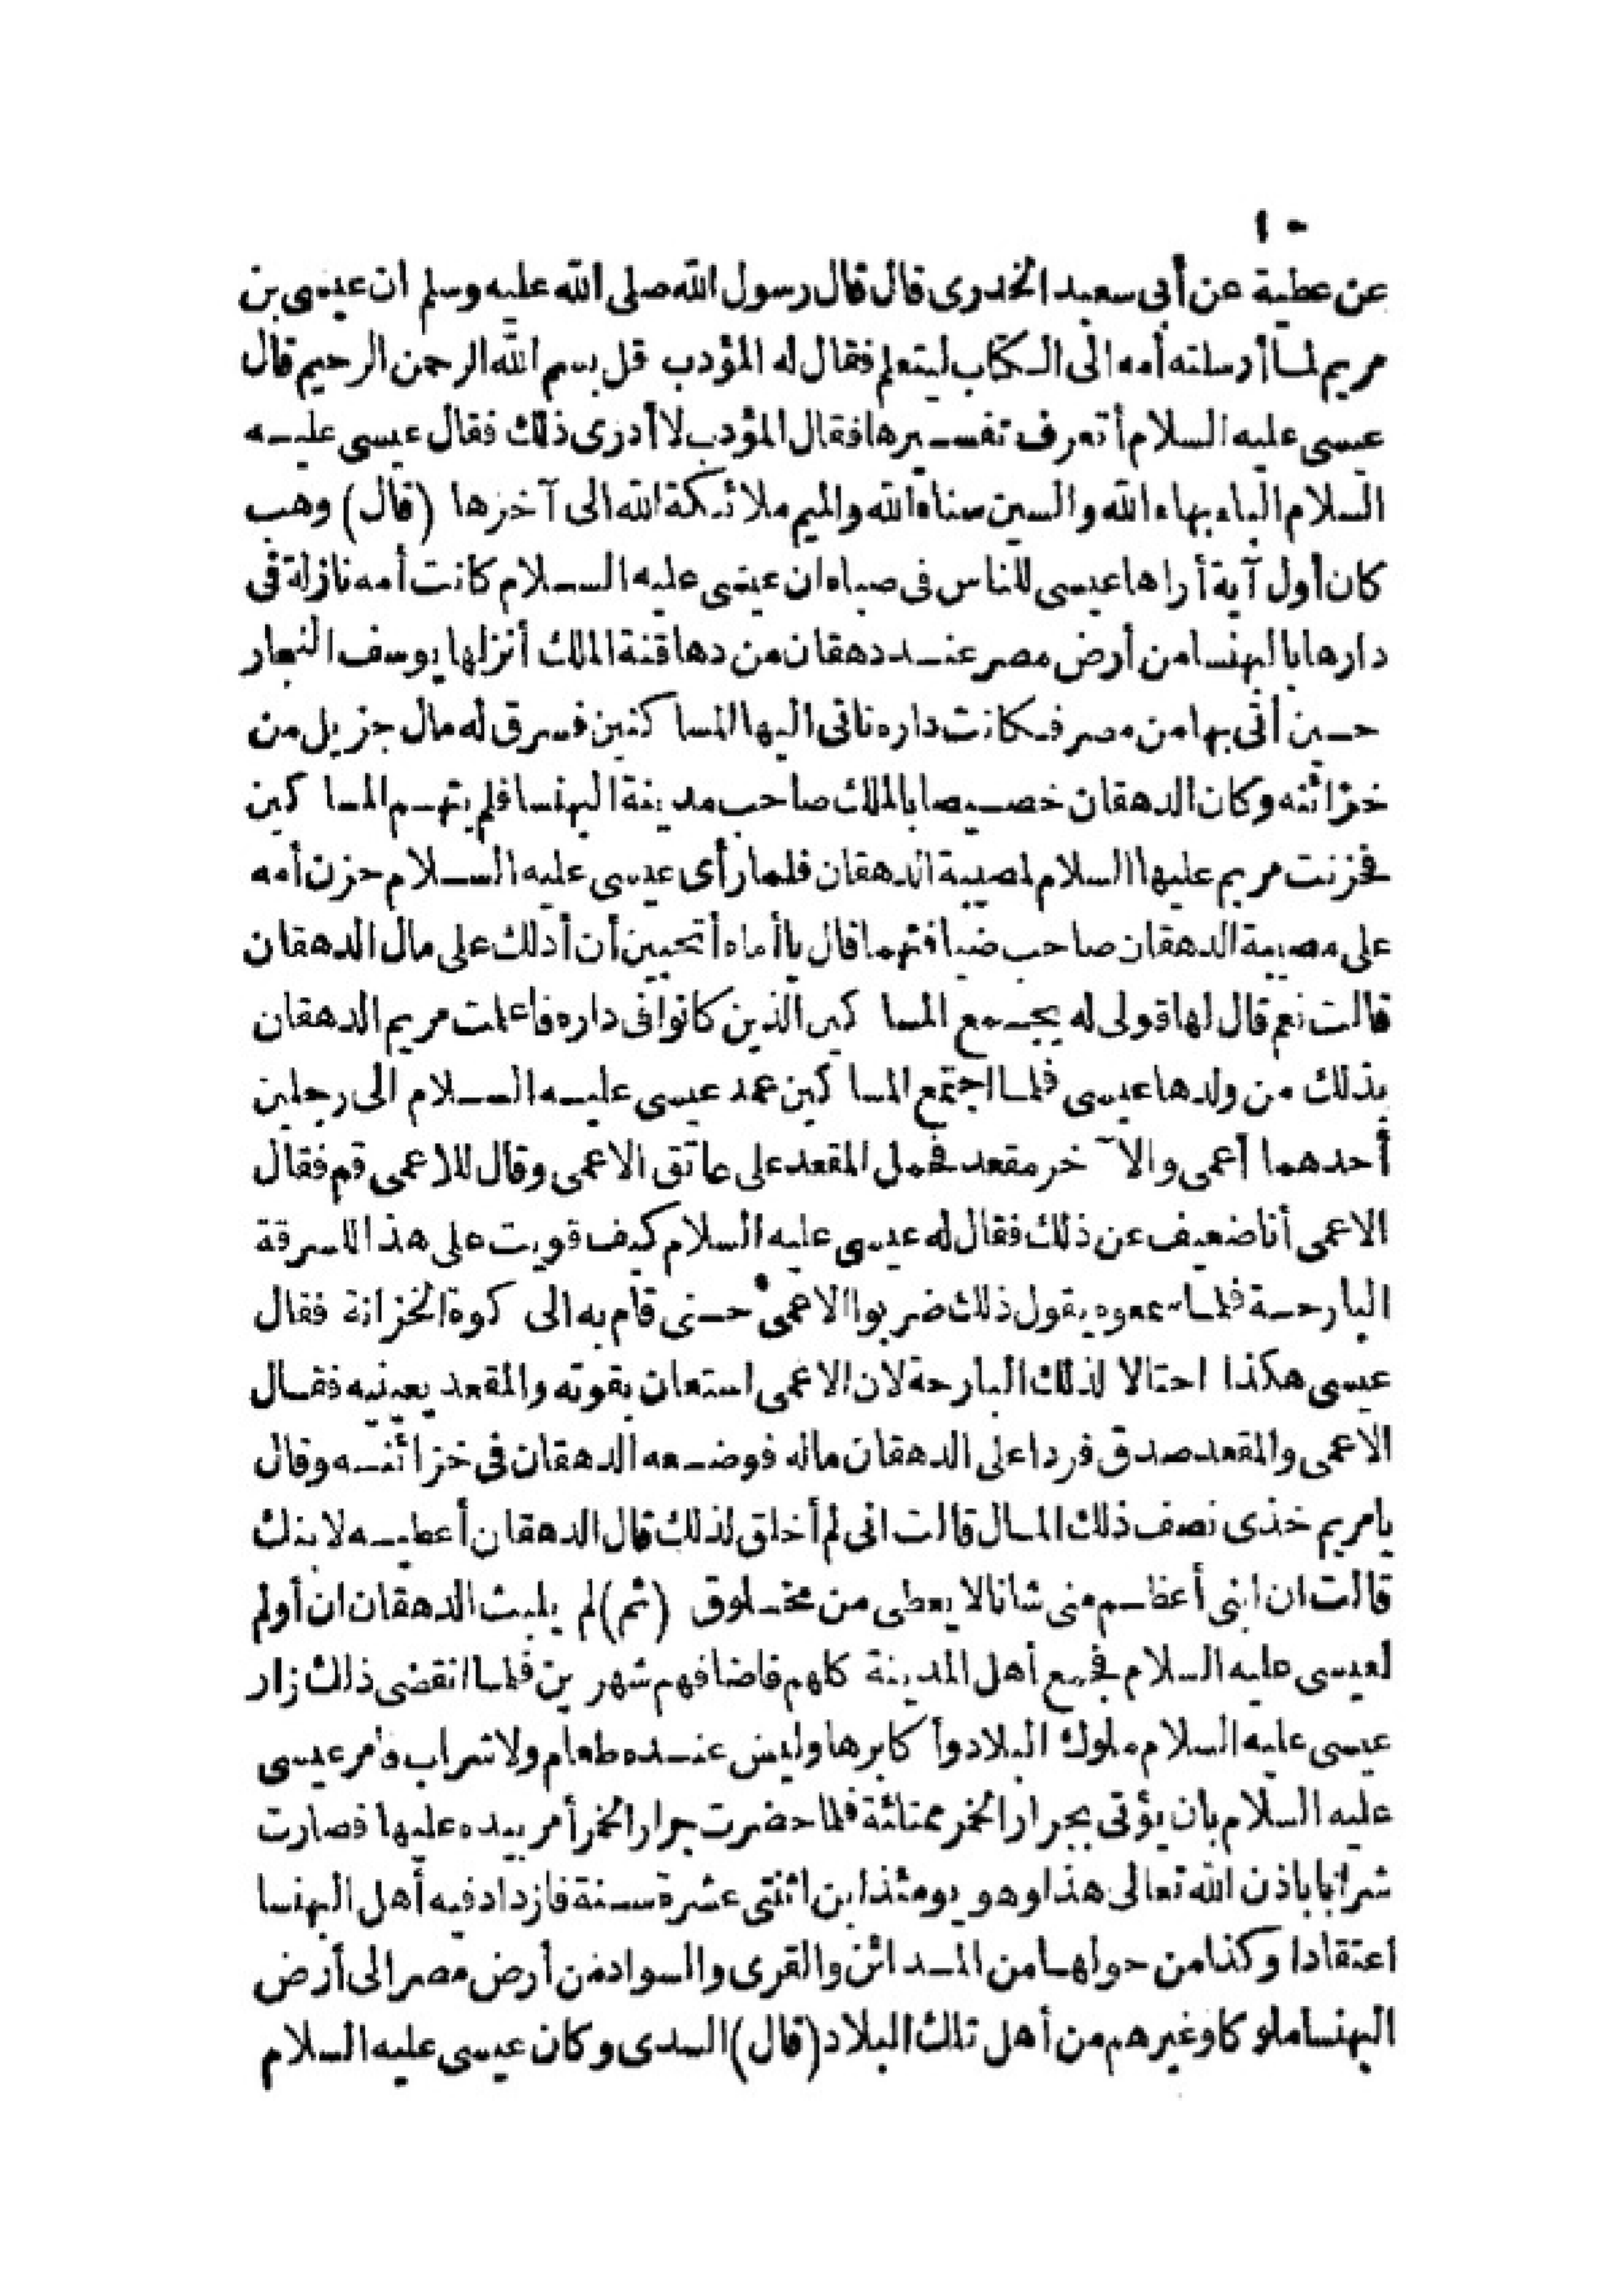 ١٠
عن عطية عن أبى سعيد الخدرى قال قال رسول الله صلى الله عليه وسلم ان عيسى بن
مريم لما أرسلته أمه الى الكتاب ليتعلم فقال له المؤدب قل بسم الله الرحمن الرحيم قال
عيسى عليه السلام أتعرف تفسيرها فقال المؤدب لا أدرى ذلك فقال عيسى عليه
السلام الباء بهاء الله والسين سناء الله والميم ملائكة الله الى آخرها (قال) وهب
كان أول آية أراها عيسى للناس فى صباه ان عيسى عليه السلام كانت أمه نازلة فى
دارها بالبهنسا من أرض مصر عند دهقان من دهاقنة الملك أنزلها يوسف النجار
حين أتى بها من مصر فكانت داره تاتى اليها المساكين فسرق له مال جزيل من
خزائنه وكان الدهقان خصيصا بالملك صاحب مدينة البهنسا فلم يتهم المساكين
فحزنت مريم عليها السلام لمصيبة الدهقان فلما رأى عيسى عليه السلام حزن أمه
على مصيبة الدهقان صاحب ضيافتهما قال يا أماه أتحبين أن أدلك على مال الدهقان
قالت نعم قال لها قولى له يجمع المساكين الذين كانوا فى داره فاعلمت مريم الدهقان
بذلك من ولدها عيسى فلما اجتمع المساكين عمد عيسى عليه السلام الى رجلين
أحدهما أعمى والآخر مقعد فحمل المقعد على عاتق الاعمى وقال للاعمى قم فقال
الاعمى أنا ضعيف عن ذلك فقال له عيسى عليه السلام كيف قويت على هذا للسرقة
البارحة فلما سمعوه يقول ذلك ضربوا الاعمى حتى قام به الى كوة الخزانة فقال
عيسى هكذا احتالا لذلك البارحة لان الاعمى استعان بقوته والمقعد بعينيه فقال
الاعمى والمقعد صدق فردا على الدهقان ماله فوضعه الدهقان فى خزائنه وقال
يا مريم خذى نصف ذلك المال قالت انى لم أخلق لذلك قال الدهقان أعطيه لابنك
قالت ان ابنى أعظم منى شانا لا يعطى من مخلوق (ثم) لم يلبث الدهقان ان أولم
لعيسى عليه السلام فجمع أهل المدينة كلهم فاضافهم شهرين فلما انقضى ذلك زار
عيسى عليه السلام ملوك البلاد وأكابرها وليس عنده طعام ولا شراب فامر عيسى
عليه السلام بان يؤتى بجرار الخمر ممتلئة فلما حضرت جرار الخمر أمر بيده عليها فصارت
شرابا باذن الله تعالى هذا وهو يومئذ ابن اثنتى عشرة سنة فازداد فيه أهل البهنسا
اعتقادا وكذا من حولها من المدائن والقرى والسواد من أرض مصر الى أرض
البهنسا ملوكا وغيرهم من أهل تلك البلاد (قال) السدى وكان عيسى عليه السلام